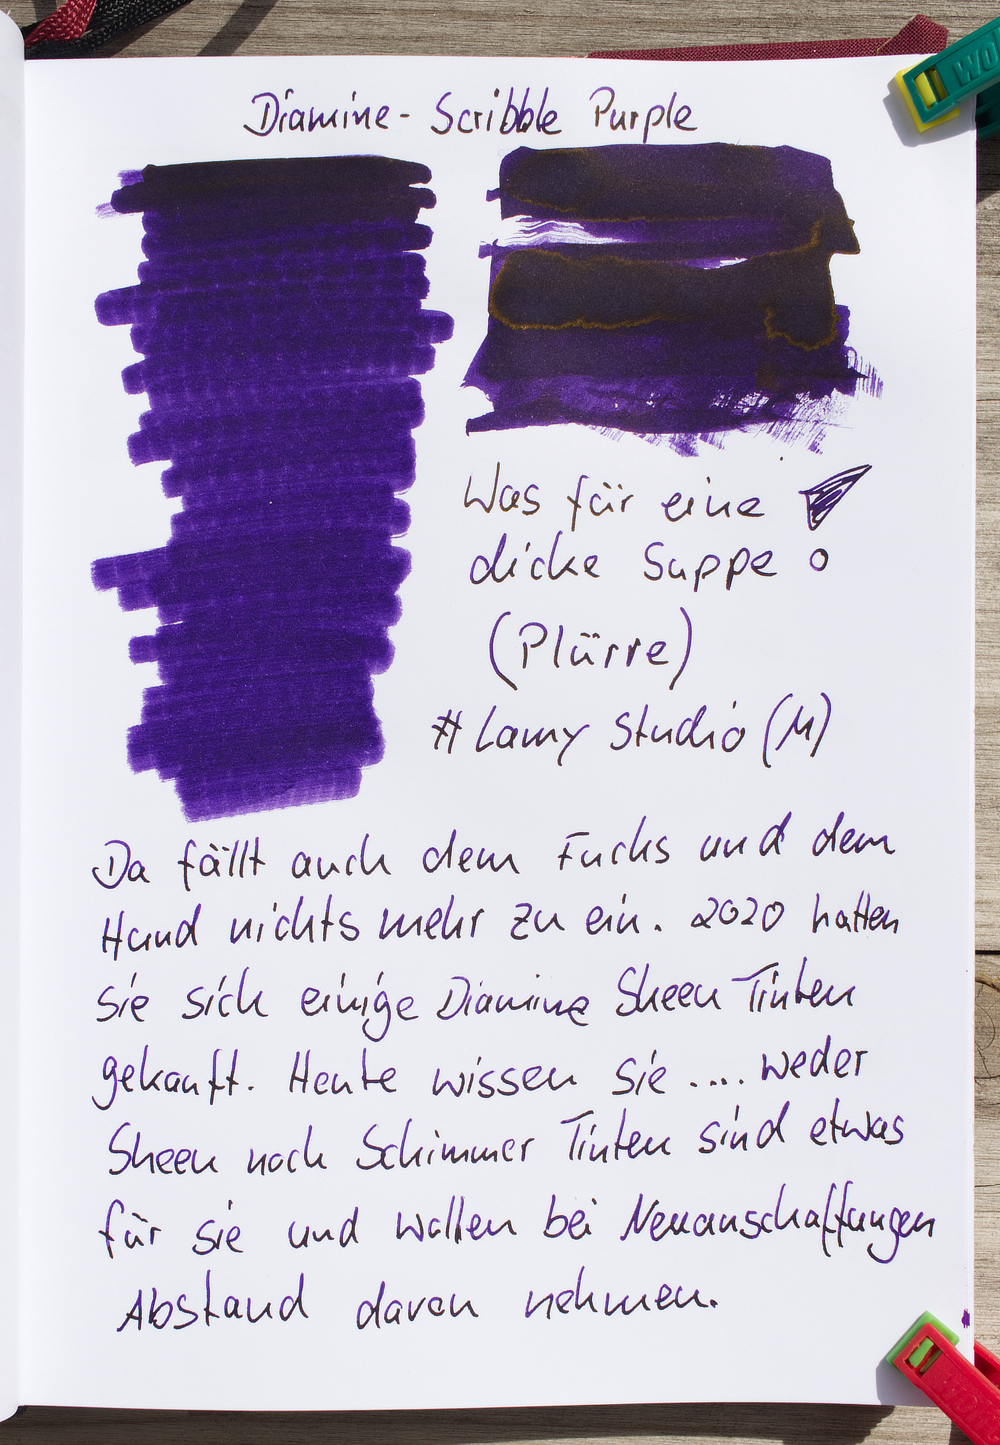 Diamine - Scribble Purple
Was für eine
dicke Suppe!
(Plürre)
# Lamy Studio (M)
Da fällt auch dem Fuchs und dem
Hund nichts mehr zu ein. 2020 hatten
sie sich einige Diamine Sheen Tinten
gekauft. Heute wissen sie .... weder
Sheen noch Schimmer Tinten sind etwas
für sie und wollen bei Neuanschaffungen
Abstand davon nehmen.